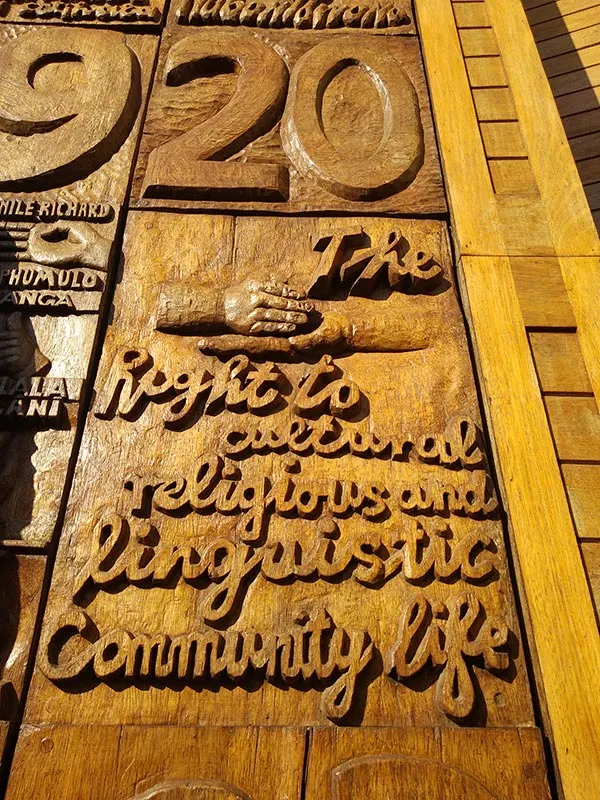 920
NILE RICHARD
PHUMULO
ANGA
LALA
ANI
The
Right to
cultural
religious and
linguistic
Community life